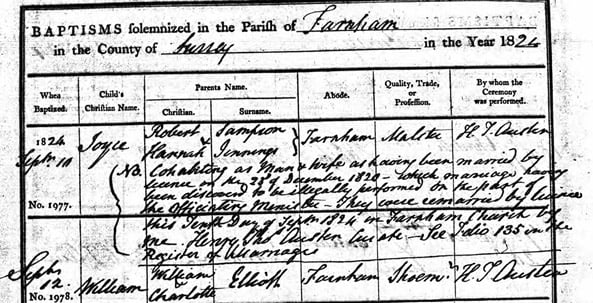 BAPTISMS solemnized in the Parish of Farnham
in the County of Surrey in the Year 1824
When Baptized. Child's Christian Name. Parents Name. Abode. Quality, Trade, or Profession. By whom the Ceremony was performed.
Christian. Surname.
1824 Robert Sampson
Septr. 10 Joyce & Farnham Malster H. T. Austen
Hannah Jennings
NB. Cohabiting as Man & Wife as having been married by
licence on the 23d of December 1820 - which marriage having
been discovered to be illegally performed on the part of
No. 1977. the Officiating Minister - They were remarried by licence
this Tenth Day of Septr. 1824 in Farnham Church by
me Henry Thos Austen Curate - See Folio 135 in the
Register of Marriages
Septr. 12. William William & Elliott Farnham Shoemr. H. T. Austen
No. 1978. Charlotte